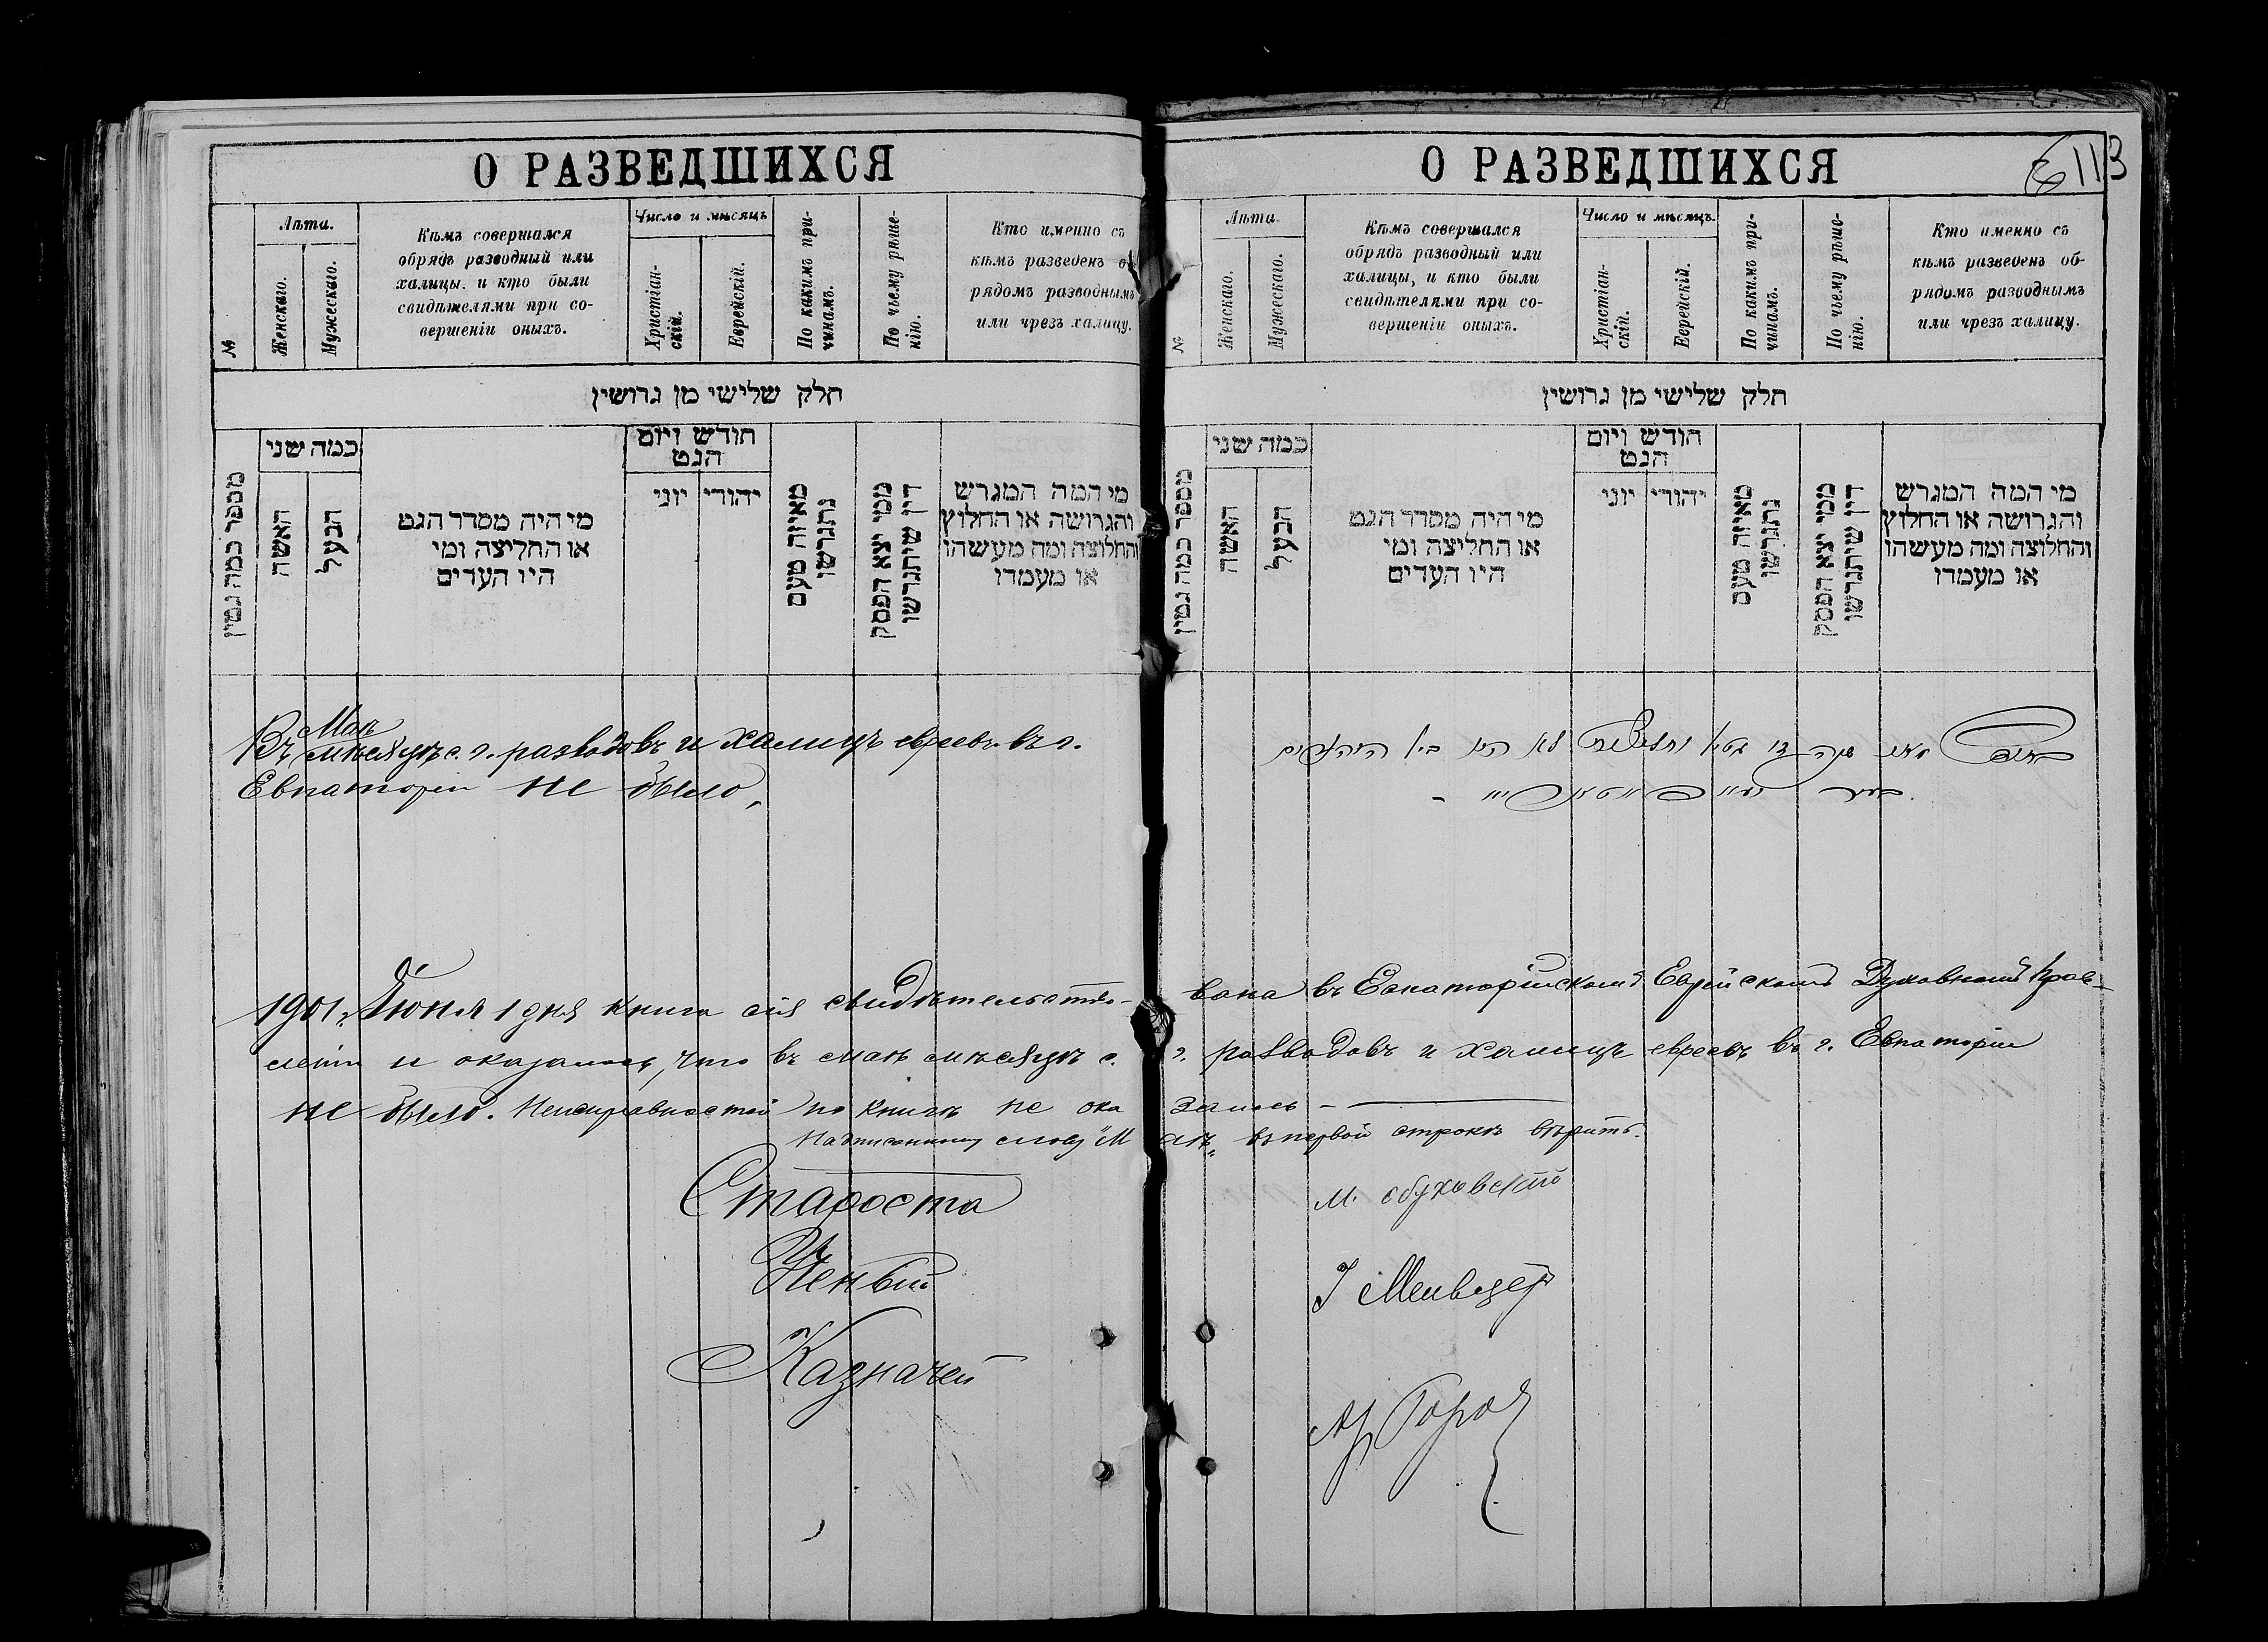 О РАЗВЕДШИХСЯ
№
Лѣта.
Женскаго.
Мужескаго.
Кѣмъ совершался
обрядъ разводный или
халицы. и кто были
свидѣтелями при со-
вершеніи оныхъ.
Число и мѣсяцъ
Христіан-
скій.
Еврейскій.
По какимъ при-
чинамъ.
По чьему рѣше-
нію.
Кто именно съ
кѣмъ разведенъ об
рядомъ разводнымъ
или чрезъ халицу.
חלק שלישי מן גרושין
מספר כמה גטין
כמה שני
האשה
הבעל
מי היה מסדר הגט
או החליצה ומי
היו העדים
חודש ויום
הגט
יוני
יהודי
מאיזה טעם
נתגרשו
ממי יצא הפסק
דין שיתגרשו
מי המה המגרש
והגרושה או החלוץ
והחלוצה ומה מעשהו
או מעמדו
Маѣ
Въ мѣсяцѣ с. г. разводовъ и халицъ евреевъ въ г.
Евпаторіи не было.
1901 г. Іюня 1 дня книга сія свидѣтельство-
леніи и оказалось, что въ маѣ мѣсяцѣ с.
не было. Неисправностей по книгѣ не ока
Надписанному слову "М
Староста
Ученый
Казначей
О РАЗВЕДШИХСЯ
113
№
Лѣта
Женскаго.
Мужескаго.
Кѣмъ совершался
обрядъ разводный или
халицы, и кто были
свидѣтелями при со-
вершеніи оныхъ.
Число и мѣсяцъ.
Христіан-
скій.
Еврейскій.
По какимъ при-
чинамъ.
По чьему рѣше-
нію.
Кто именно съ
кѣмъ разведенъ об-
рядомъ разводнымъ
или чрезъ халицу.
חלק שלישי מן גרושין
מספר כמה גטין
כמה שני
האשה
הבעל
מי היה מסדר הגט
או החליצה ומי
היו העדים
חודש ויום
הגט
יוני
יהודי
מאיזה טעם
נתגרשו
ממי יצא הפסק
דין שיתגרשו
מי המה המגרש
והגרושה או החלוץ
והחלוצה ומה מעשהו
או מעמדו
לא היו בין היהודים
вана въ Евпаторійскомъ Еврейскомъ Духовномъ Прав-
г. разводовъ и халицъ евреевъ въ г. Евпаторіи
залось —
аѣ" въ первой строкѣ вѣрить.
М. Обуховскій